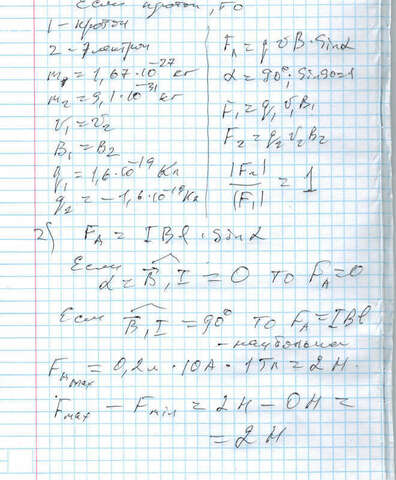 Если протон, то
1 - протон
2 - Электрон
m₁ = 1,67·10⁻²⁷ кг
m₂ = 9,1·10⁻³¹ кг
v₁ = v₂
B₁ = B₂
q₁ = 1,6·10⁻¹⁹ Кл
q₂ = -1,6·10⁻¹⁹ Кл
F_л = q v B · Sinα
α = 90°; Sin90=1
F₁ = q₁ v₁ B₁
F₂ = q₂ v₂ B₂
|F₂| / |F₁| = 1
2) F_A = I B l · Sinα
Если α = B, I = 0 то F_A = 0
Если B, I = 90° то F_A = I B l
- наибольшая
F_Amax = 0,2м · 10А · 1Тл = 2 Н.
F_max - F_min = 2 Н - 0 Н =
= 2 Н